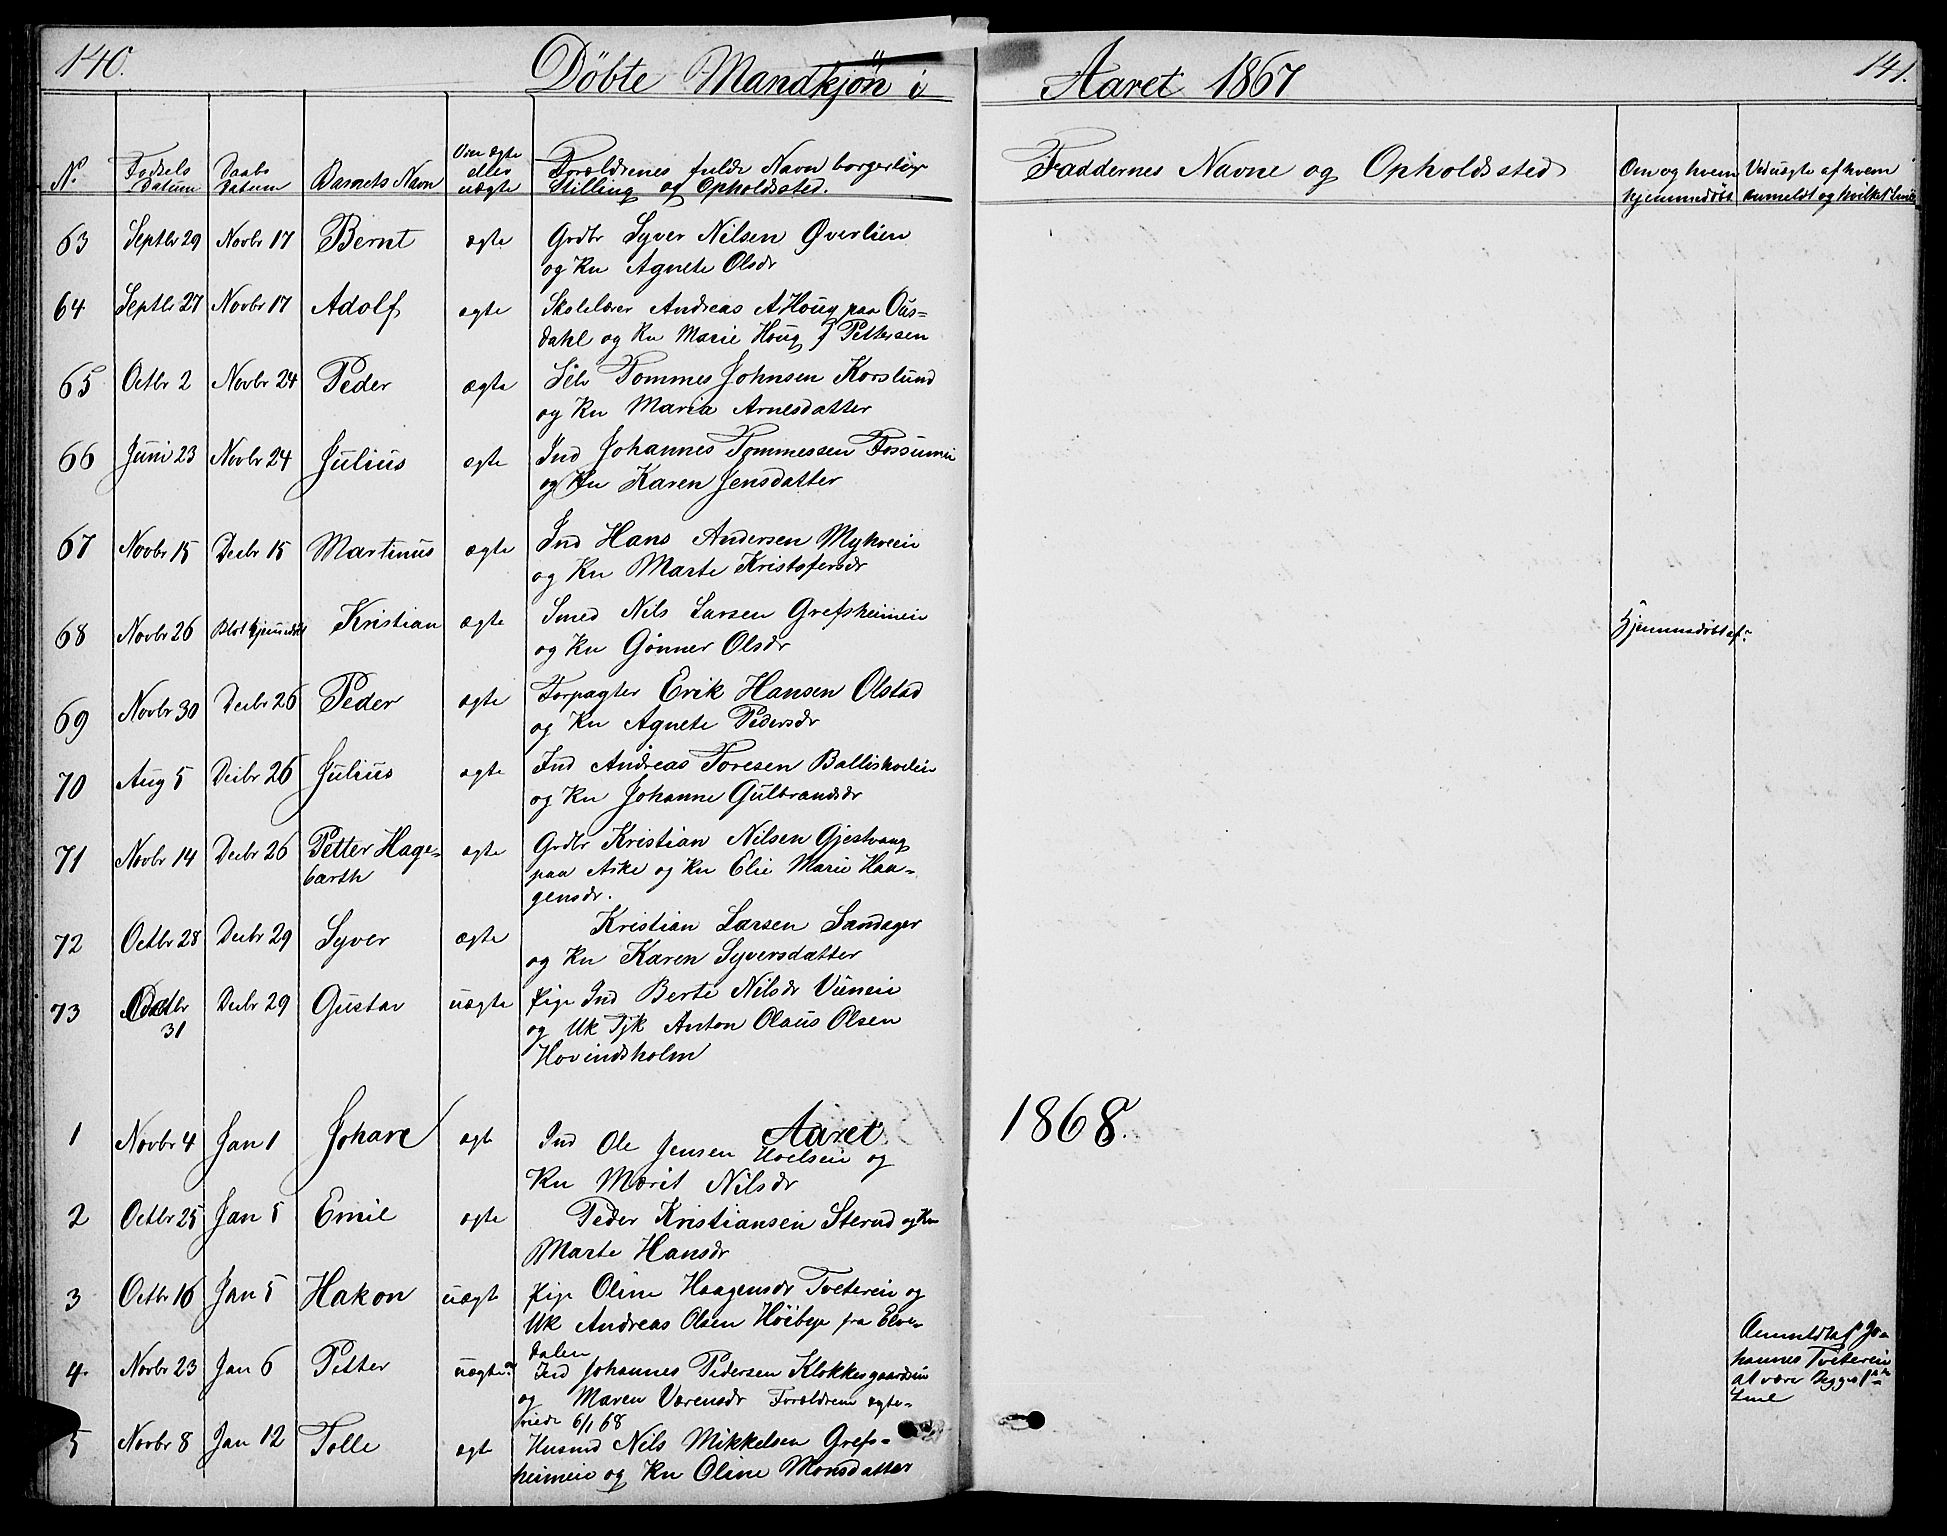 140.
Döbte Mandkjön i
Aaret 1867
141.
No Fødsels Datum Daabs Datum Barnets Navn Om ægte eller uægte Forældrenes fulde Navn borgerlige Stilling og Opholdssted.
Faddernes Navne og Opholdssted Om og hvem hjemmedøbt Ved uægte af hvem anmeldt og hvilket Leie
63 Septbr 29 Novbr 17 Bernt ægte Grdbr Syver Nilsen Øverlien
og Kn Agnete Olsdr
64 Septbr 27 Novbr 17 Adolf ægte Skolelærer Andreas A Houg paa Ous-
dahl og Kn Marie Houg f Pettersen
65 Octbr 2 Novbr 24 Peder ægte Selv Tommes Johnsen Korslund
og Kn Maria Arnesdatter
66 Juni 23 Novbr 24 Julius ægte Ind Johannes Tommessen Fossumei
og Kn Karen Jensdatter
67 Novbr 15 Decbr 15 Martinus ægte Ind Hans Andersen Myhreie
og Kn Marte Kristofersdr
68 Novbr 26 Blot hjemmedøbt Kristian ægte Smed Nils Larsen Grefsheimeie
og Kn Gönner Olsdr
Hjemmedöbt af ?
69 Novbr 30 Decbr 26 Peder ægte Forpagter Erik Hansen Olstad
og Kn Agnete Pedersdr
70 Aug 5 Decbr 26 Julius ægte Ind Andreas Toresen Ballisholeie
og Kn Johanne Gulbrandsdr
71 Novbr 14 Decbr 26 Petter Hage- ægte Grdbr Kristian Nilsen Gjestvang
barth paa Aske og Kn Elie Marie Haa-
gensdr.
72 Octbr 28 Decbr 29 Syver ægte Kristian Larsen Sandager
og Kn Karen Syversdatter
73 Octbr Decbr 29 Gustav uægte Pige Ind Berte Nilsdr Vieneie
31 og Uk Tjk Anton Olaus Olsen
Hovindsholm
Aaret 1868.
1 Novbr 4 Jan 1 Johan ægt Ind Ole Jensen Hoelseie og
Kn Marit Nilsdr
2 Octbr 25 Jan 5 Emil ægte Peder Kristiansen Sterud og Kn
Marte Hansdr
3 Octbr 16 Jan 5 Hakon uægt Pige Oline Haagensdr Tvetereie og
Uk Andreas Olsen Höibye fra Elve-
dalen
Anmeldt af Jo-
hannes Tvetereie
at være begges 1ste
Leie
4. Novbr 23 Jan 6 Petter uægte Ind Johannes Pedersen Klokkergaardeie
og Maren Værensdr Forældrene ægte-
viede 6/1 68
5 Novbr 8 Jan 12 Tolle ægt Husmd Nils Mikkelsen Grefs-
heimeie og Kn Oline Monsdatter